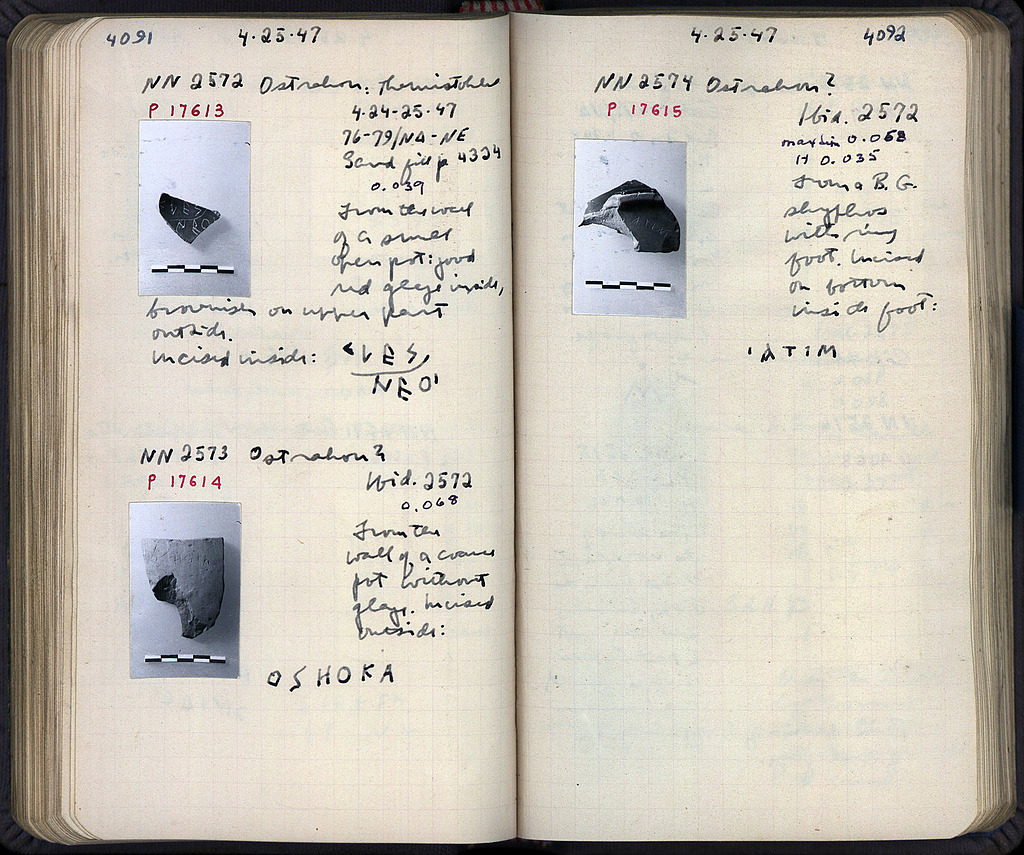 4091 4·25·47
NN 2572 Ostrakon: Themistokles
P 17613 4·24-25·47
76-79/ΝΔ-ΝΕ
Sand fill p 4324
0.039
From the wall
of a small
open pot: good
red glaze inside,
brownish on upper part
outside.
Incised inside: ΛΕS
ΝΕΟ
NN 2573 Ostrakon?
P 17614 Ibid. 2572
0.068
From the
wall of a coarse
pot without
glaze. Incised
outside:
OSHOKA
4·25·47 4092
NN 2574 Ostrakon?
P 17615 Ibid. 2572
max dim 0.058
H 0.035
From a B.G.
skyphos
with ring
foot. Incised
on bottom
inside foot:
ΑΤΙΜ